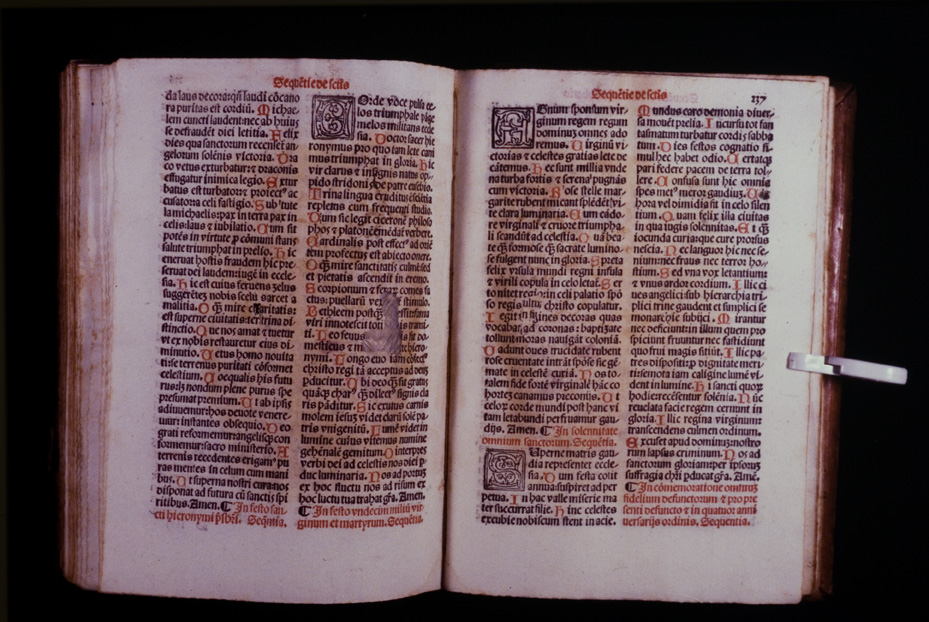 Sequẽtie de scɫis
da laus decora: qꝫ laudi cõcano
ra puritas est cordiũ. Michae-
lem cuncti laudent: nec ab huius
se defraudẽt diei letitia. Felix
dies qua sanctorum recenset an-
gelorum solẽnis victoria. Dra
co vetus exturbatur: ⁊ draconis
effugatur inimica legio. Extur
batus est turbator: ⁊ proiectꝰ ac
cusator a celi fastigio. Sub tute
la michaelis: pax in terra pax in
celis: laus ⁊ iubilatio. Cum sit
potẽs in virtute ꝓ cõmuni stans
salute triumphat in prelio. Hic
seruat diu laudem: iuge in eccle
sia. Hic est cuius feruens zelus
malitia. O q̃ mire caritatis:
est superne ciuitatis: ter trina di-
stinctio. Que nos amat ⁊ tuetur
vt ex nobis restauretur eius di
minutio. Vetus homo nouita
ti se terrenus puritati cõformet
celestium. Coequalis his futu
rus: lꝫ nondum plene purus spe
presumat premium. Ut ab ipsis
adiuuemur: hos deuote venere-
mur: instantes obsequio. Deo
grati reformemur: angelisqꝫ con
formemur: sacro ministerio. A
terrenis recedentes erigamꝰ pu
ras mentes in celum cum mani
bus. Ut superna nostri cura nos
disponat ad futura cũ sanctis spi
ritibus. Amen. ¶ In festo san-
cti hieronymi p̃sbri. Seq̃ntia.
Orde voce pulsa ce-
los triumphale pãge
melos militans eccle
sia. Doctor sacer hie
ronymus pro quo tam lete cani
mus triumphat in gloria. Hic
vir clarus ⁊ insignis natus op-
pido stridonis spõ patre eusebio.
Trina lingua eruditus: edẽtia
repletus cum frequenti studio.
Dum sic legit ciceronẽ philoso
phos ⁊ platonẽ: mẽdat verberi.
Cardinalis post effectꝰ ad oriẽ
tem profectus est abiecto onere.
O q̃ mire sanctitatis culmẽ sed
et pietatis ascendit in eremo.
Scorpionum ⁊ ferarũ comes fa
ctus: puellarũ vexa stimulo.
Bethleem postq̃
viri innotescit toti
ti. Leo seuus
mesticus ⁊
nymi. Longo euo tam
christo regi tã acceptus ad deos
ꝓducitur. Ubi deo q̃ sit gratus
quãqꝫ charꝰ q̃ dilectꝰ signis da
ris pãditur. Sic exutus carnis
molem iesuꝫ videt darũ sole pa-
tris vnigenitũ. Lumẽ videt in
lumine cuius vitemus numine
gehẽnale gemitum. O interpres
verbi dei ad celestis nos diei p̃
duc luminaria. Nos ad portus
ex hoc fluctu nos ad risum ex
hoc luctu tua trahat gr̃a. Amen.
¶ In festo vndecim miliũ vir
ginum et martyrum. Sequẽtia.
Sequẽtie de scɫis 137
Gnum sponsum vir-
ginum regem regum
dominũ omnes ado
remus. Virginũ vi-
ctorias ⁊ celestes gratias lete de
cãtemus. Hec sunt millia vnde
na turba fortis ⁊ serena pugnãs
cum victoria. Rose stelle mar-
garite rubent micant splẽdẽt: vi
te clara luminaria. Cum cãdo-
re virginali ⁊ cruore triumpha-
li scandunt celestia. O q̃ bea-
te q̃ȝ formose q̃ȝ sacrate lumino-
se fulgent nunc in gloria. Spreta
felix vrsula mundi regni insula
⁊ virili copula in celo letat̃. Ser
to nitet regio: in celi palatio spõ
so regis filio christo copulatur.
Legerit insignes decoras quas
vocabat ad coronas: baptizate
tollunt moras nauigãt coloniã.
Adunt oues trucidate rubent
rose cruentate intrãt spõse sic ge-
mate in celestẽ curiã. Nos to-
talem fide sorte virginale hac co
hortes canamus preconiis. Ut i
celo: corde mundi post hanc vi
tam letabundi perfruamur gau-
dijs. Amen. ¶ In solennitate
omnium sanctorum. Sequẽtia.
Uperne matris gau-
dia representet eccle-
sia. Dum festa colit
annua: suspiret ad per
petua. In hac valle miserie ma
ter succurrat filie. Hic celestes
excubie nobiscum stent in acie.
Mundus caro demonia diuer
sa mouẽt prelia. Incursu tot fan
tasmatum turbatur cordis sabba
tum. Dies festos cognatio si-
mul hec habet odio. Certatqꝫ
pari federe pacem de terra tol-
lere. Confusa sunt hic omnia
spes metꝰ meror gaudiuꝫ. Vix
hora vel dimidia fit in celo silen
tium. Quam felix illa ciuitas
in qua iugis solẽnitas. Et q̃
iocunda curia: que cure prorsus
nescia. Nec languor hic nec se-
nium: nec fraus nec terror ho-
stium. Sed vna vox letantium:
⁊ vnus ardor cordium. Illic ci
ues angelici sub hierarchia tri-
plici: trine gaudent ⁊ simplici se
monarchie subijci. Mirantur
nec deficiunt: in illum quem pro
spiciunt fruuntur nec fastidiunt
quo frui magis sitiũt. Illic pa-
tres dispositi: ꝓ dignitate meri
ti: semota iam caligine lumẽ vi-
dent in lumine. Hi sancti quorꝫ
hodie: recẽsetur solẽnia. Nũc
reuelata facie regem cernunt in
gloria. Illic regina virginum
transcendens culmen ordinum.
Excuset apud dominuꝫ: nostro
rum lapsus criminum. Nos ad
sanctorum gloriam: per ipsorũ
suffragia christi ꝑducat gr̃a. Amẽ.
¶ In cõmemoratione omniuꝫ
fidelium defunctorum ⁊ pro pre
senti defuncto ⁊ in quatuor anni
uersarijs ordinis. Sequentia.